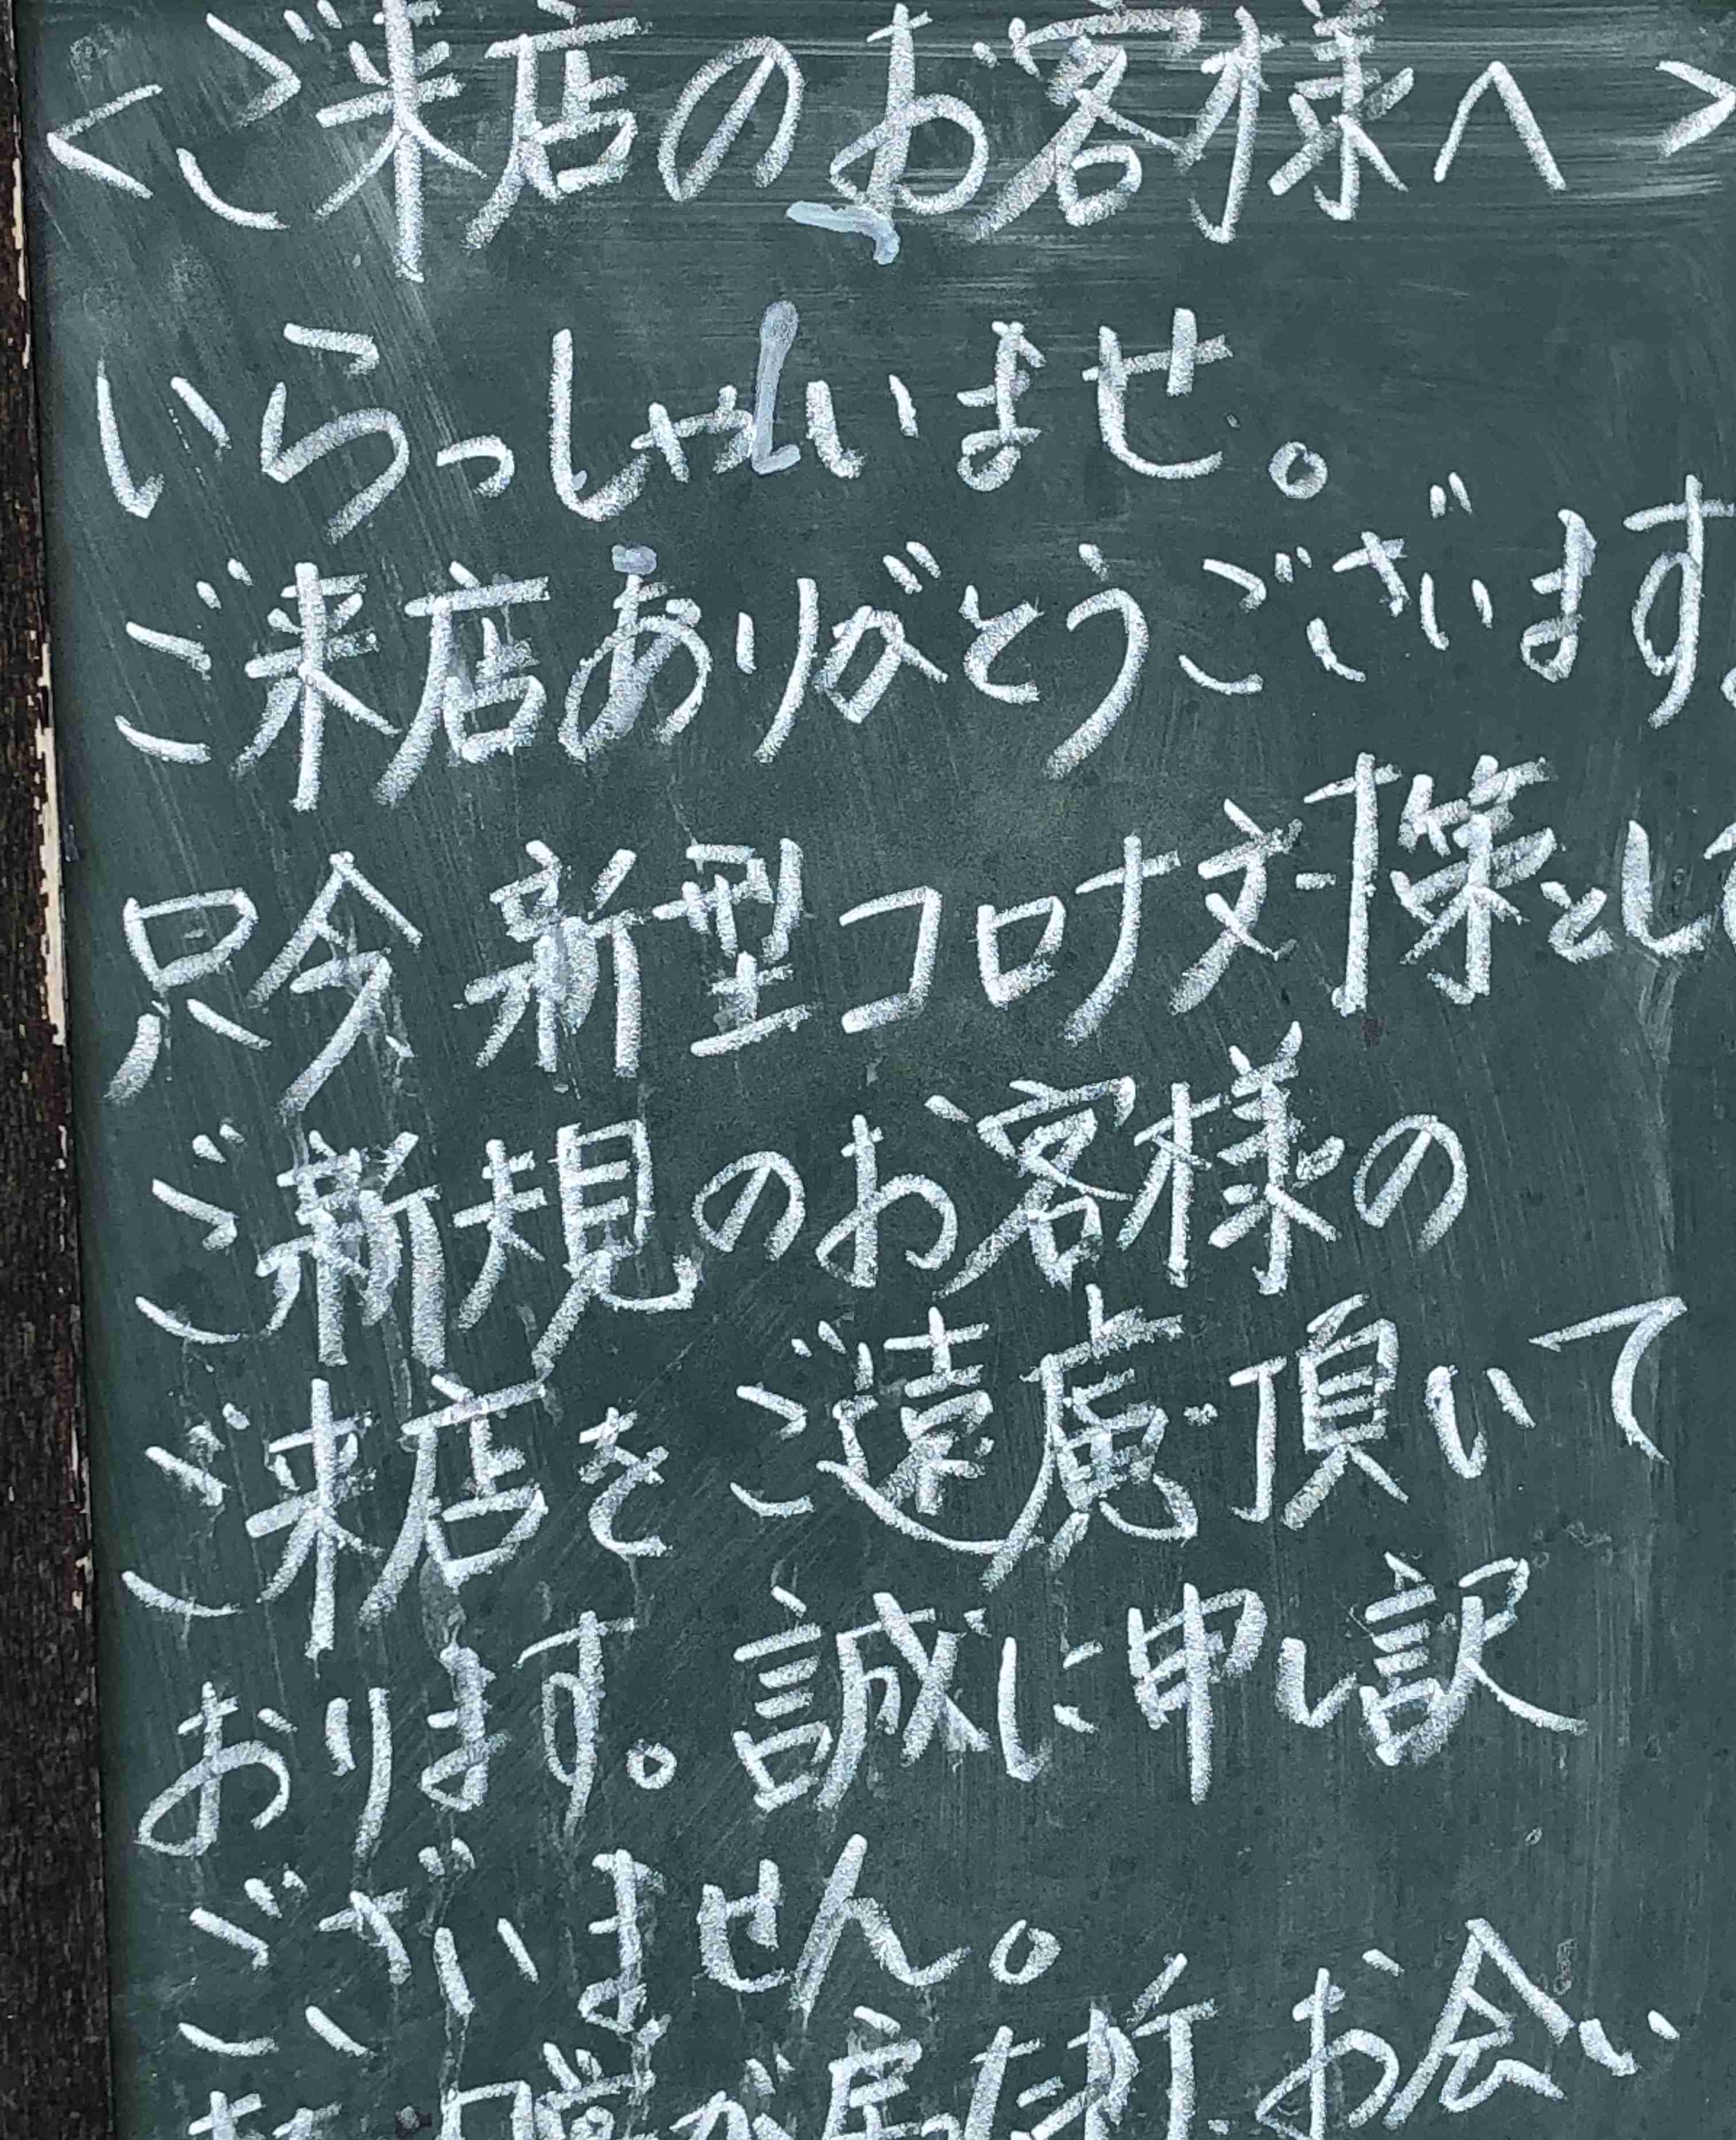 <ご来店のお客様へ>
いらっしゃいませ。
ご来店ありがとうございます。
只今 新型コロナ対策として
ご新規のお客様の
ご来店を ご遠慮頂いて
おります。誠に申し訳
ございません。
が戻った折 お会い